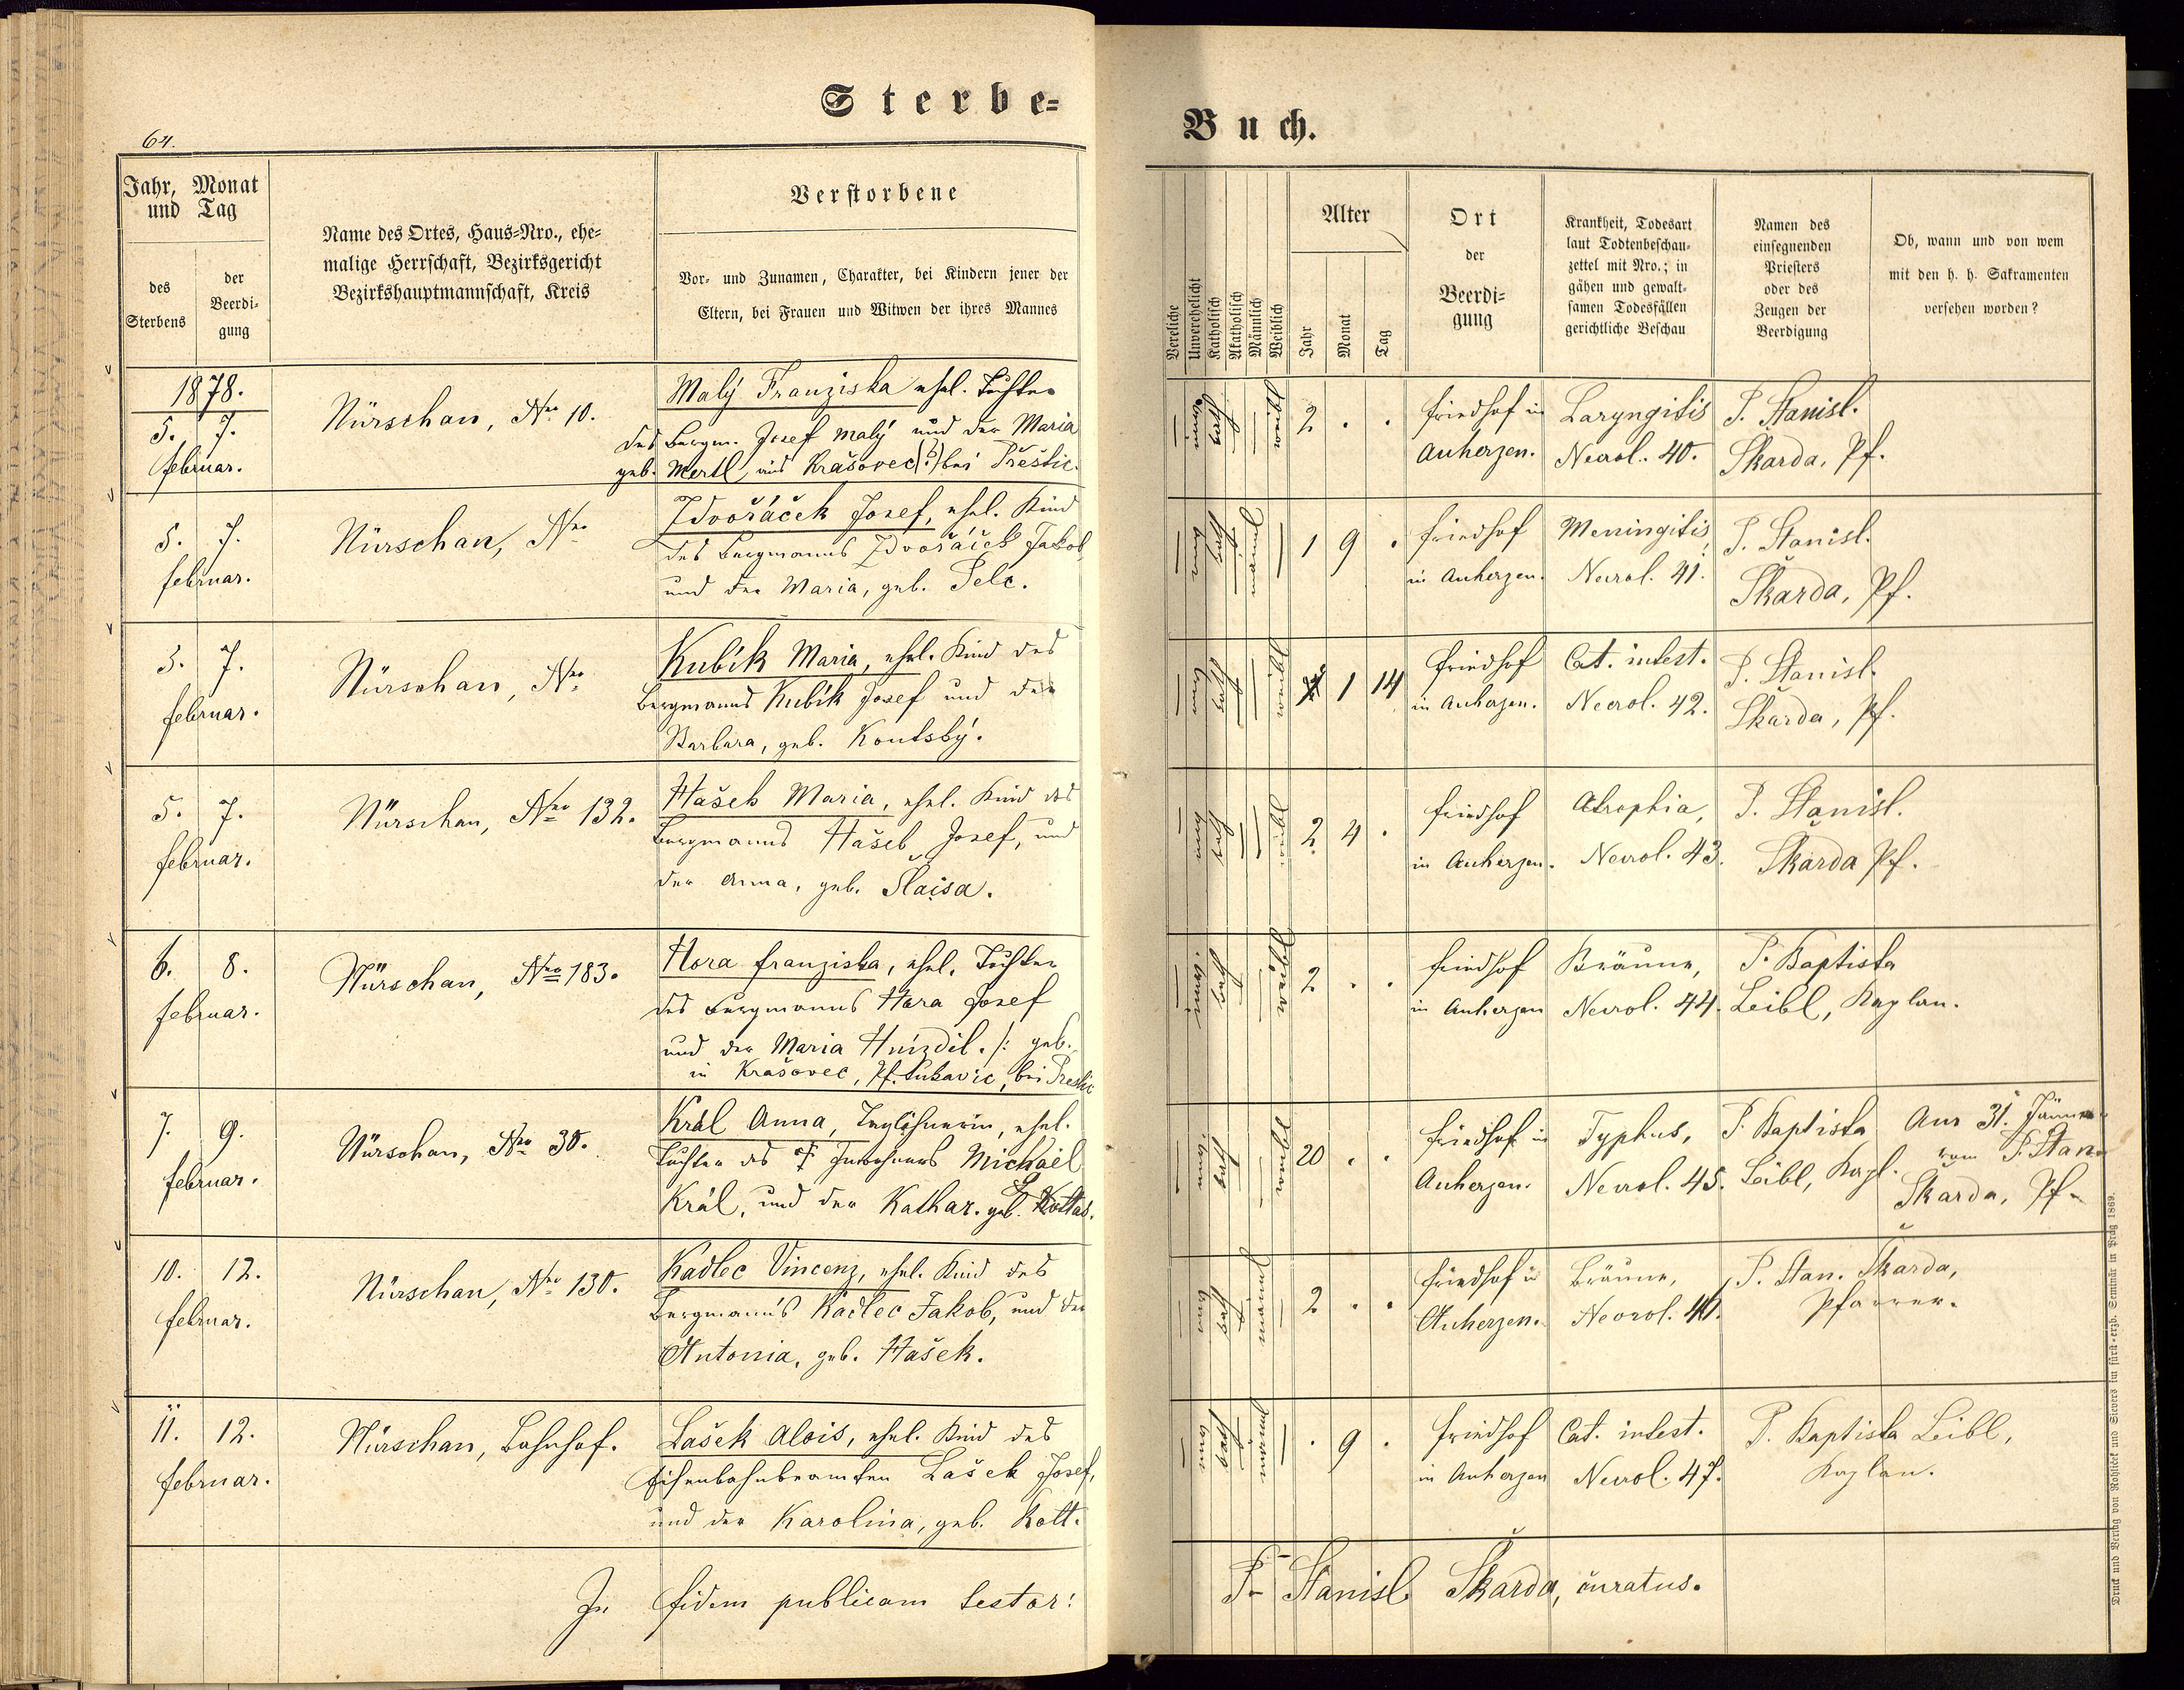 Sterbe-
Buch.
64.
Jahr, Monat
und Tag
des
Sterbens
der
Beerdi-
gung
Name des Ortes, Haus-Nro., ehe-
malige Herrschaft, Bezirksgericht
Bezirkshauptmannschaft, Kreis
Verstorbene
Vor- und Zunamen, Charakter, bei Kindern jener der
Eltern, bei Frauen und Witwen der ihres Mannes
Vereliche
Unverehelicht
Katholisch
Akatholisch
Männlich
Weiblich
Alter
Jahr
Monat
Tag
Ort
der
Beerdi-
gung
Krankheit, Todesart
laut Todtenbeschau-
zettel mit Nro.; in
gähen und gewalt-
samen Todesfällen
gerichtliche Beschau
Namen des
einsegnenden
Priesters
oder des
Zeugen der
Beerdigung
Ob, wann und von wem
mit den h. h. Sakramenten
versehen worden?
1878.
5. 7.
februar.
Nürschan, Nro 10.
Malý Franziska ehel. Tochter
des Bergm. Josef Malý und der Maria
geb. Mertl, aus Krašovec(?) bei Přeštic.
2 . .
friedhof in
Auherzen.
Laryngitis
Necrol. 40.
P. Stanisl.
Škarda, Pf.
5. 7.
februar.
Nürschan, Nro
Zdvořáček Josef, ehel. Kind
des Bergmanns Zdvořáček Jakob,
und der Maria, geb. Pelc.
1 9 .
friedhof
in Auherzen.
Meningitis,
Necrol. 41.
P. Stanisl.
Škarda, Pf.
5. 7.
februar.
Nürschan, Nro
Kubík Maria, ehel. Kind des
Bergmanns Kubík Josef und der
Barbara, geb. Koutský.
1 14
friedhof
in Auherzen.
Cat. intest.
Necrol. 42.
P. Stanisl.
Škarda, Pf.
5. 7.
februar.
Nürschan, Nro 132.
Hašek Maria, ehel. Kind des
Bergmanns Hašek Josef, und
der Anna, geb. Slaisa.
2 4 .
friedhof
in Auherzen.
Atrophia,
Necrol. 43.
P. Stanisl.
Škarda Pf.
6. 8.
februar.
Nürschan, Nro 183.
Hora franziska, ehel. Tochter
des Bergmanns Hora Josef
und der Maria Hnízdil. /: geb.
in Krašovec, Pf. Lukavic, bei Prestic
2 . .
friedhof
in Auherzen
Bräune,
Necrol. 44.
P. Baptista
Leibl, Kaplan.
7. 9.
februar.
Nürschan, Nro 30.
Král Anna, Taglöhnerin, ehel.
Tochter des † Inwohners Michael
Král, und der Kathar. geb. Kottas.
20 . .
friedhof in
Auherzen.
Typhus,
Necrol. 45.
P. Baptista
Leibl, Kapl.
Am 31. Jänner
vom P. Stan.
Škarda, Pf.
10. 12.
februar.
Nürschan, Nro 130.
Kadlec Vincenz, ehel. Kind des
Bergmanns Kadlec Jakob, und der
Antonia, geb. Hašek.
2 . .
friedhof in
Auherzen.
Bräune,
Necrol. 46.
P. Stan. Škarda,
Pfarrer.
11. 12.
februar.
Nürschan, Bahnhof.
Lašek Alois, ehel. Kind des
Eisenbahnbeamten Lašek Josef,
und der Karolina, geb. Kott.
. 9 .
friedhof
in Auherzen
Cat. intest.
Necrol. 47.
P. Baptista Leibl,
Kaplan.
In fidem publicam testor:
P. Stanisl. Škarda, curatus.
Druck und Verlag von Rohliček und Sievers im fürst-erzb. Seminär in Prag 1869.